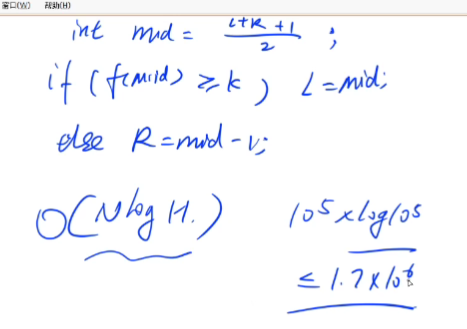 窗口(W) 帮助(H)
int mid = (L+R+1)/2 ;
if (f(mid) ≥ k) L=mid;
else R=mid-1;
O(N log H.) 10^5 x log10^5
≤ 1.7 x 10^6